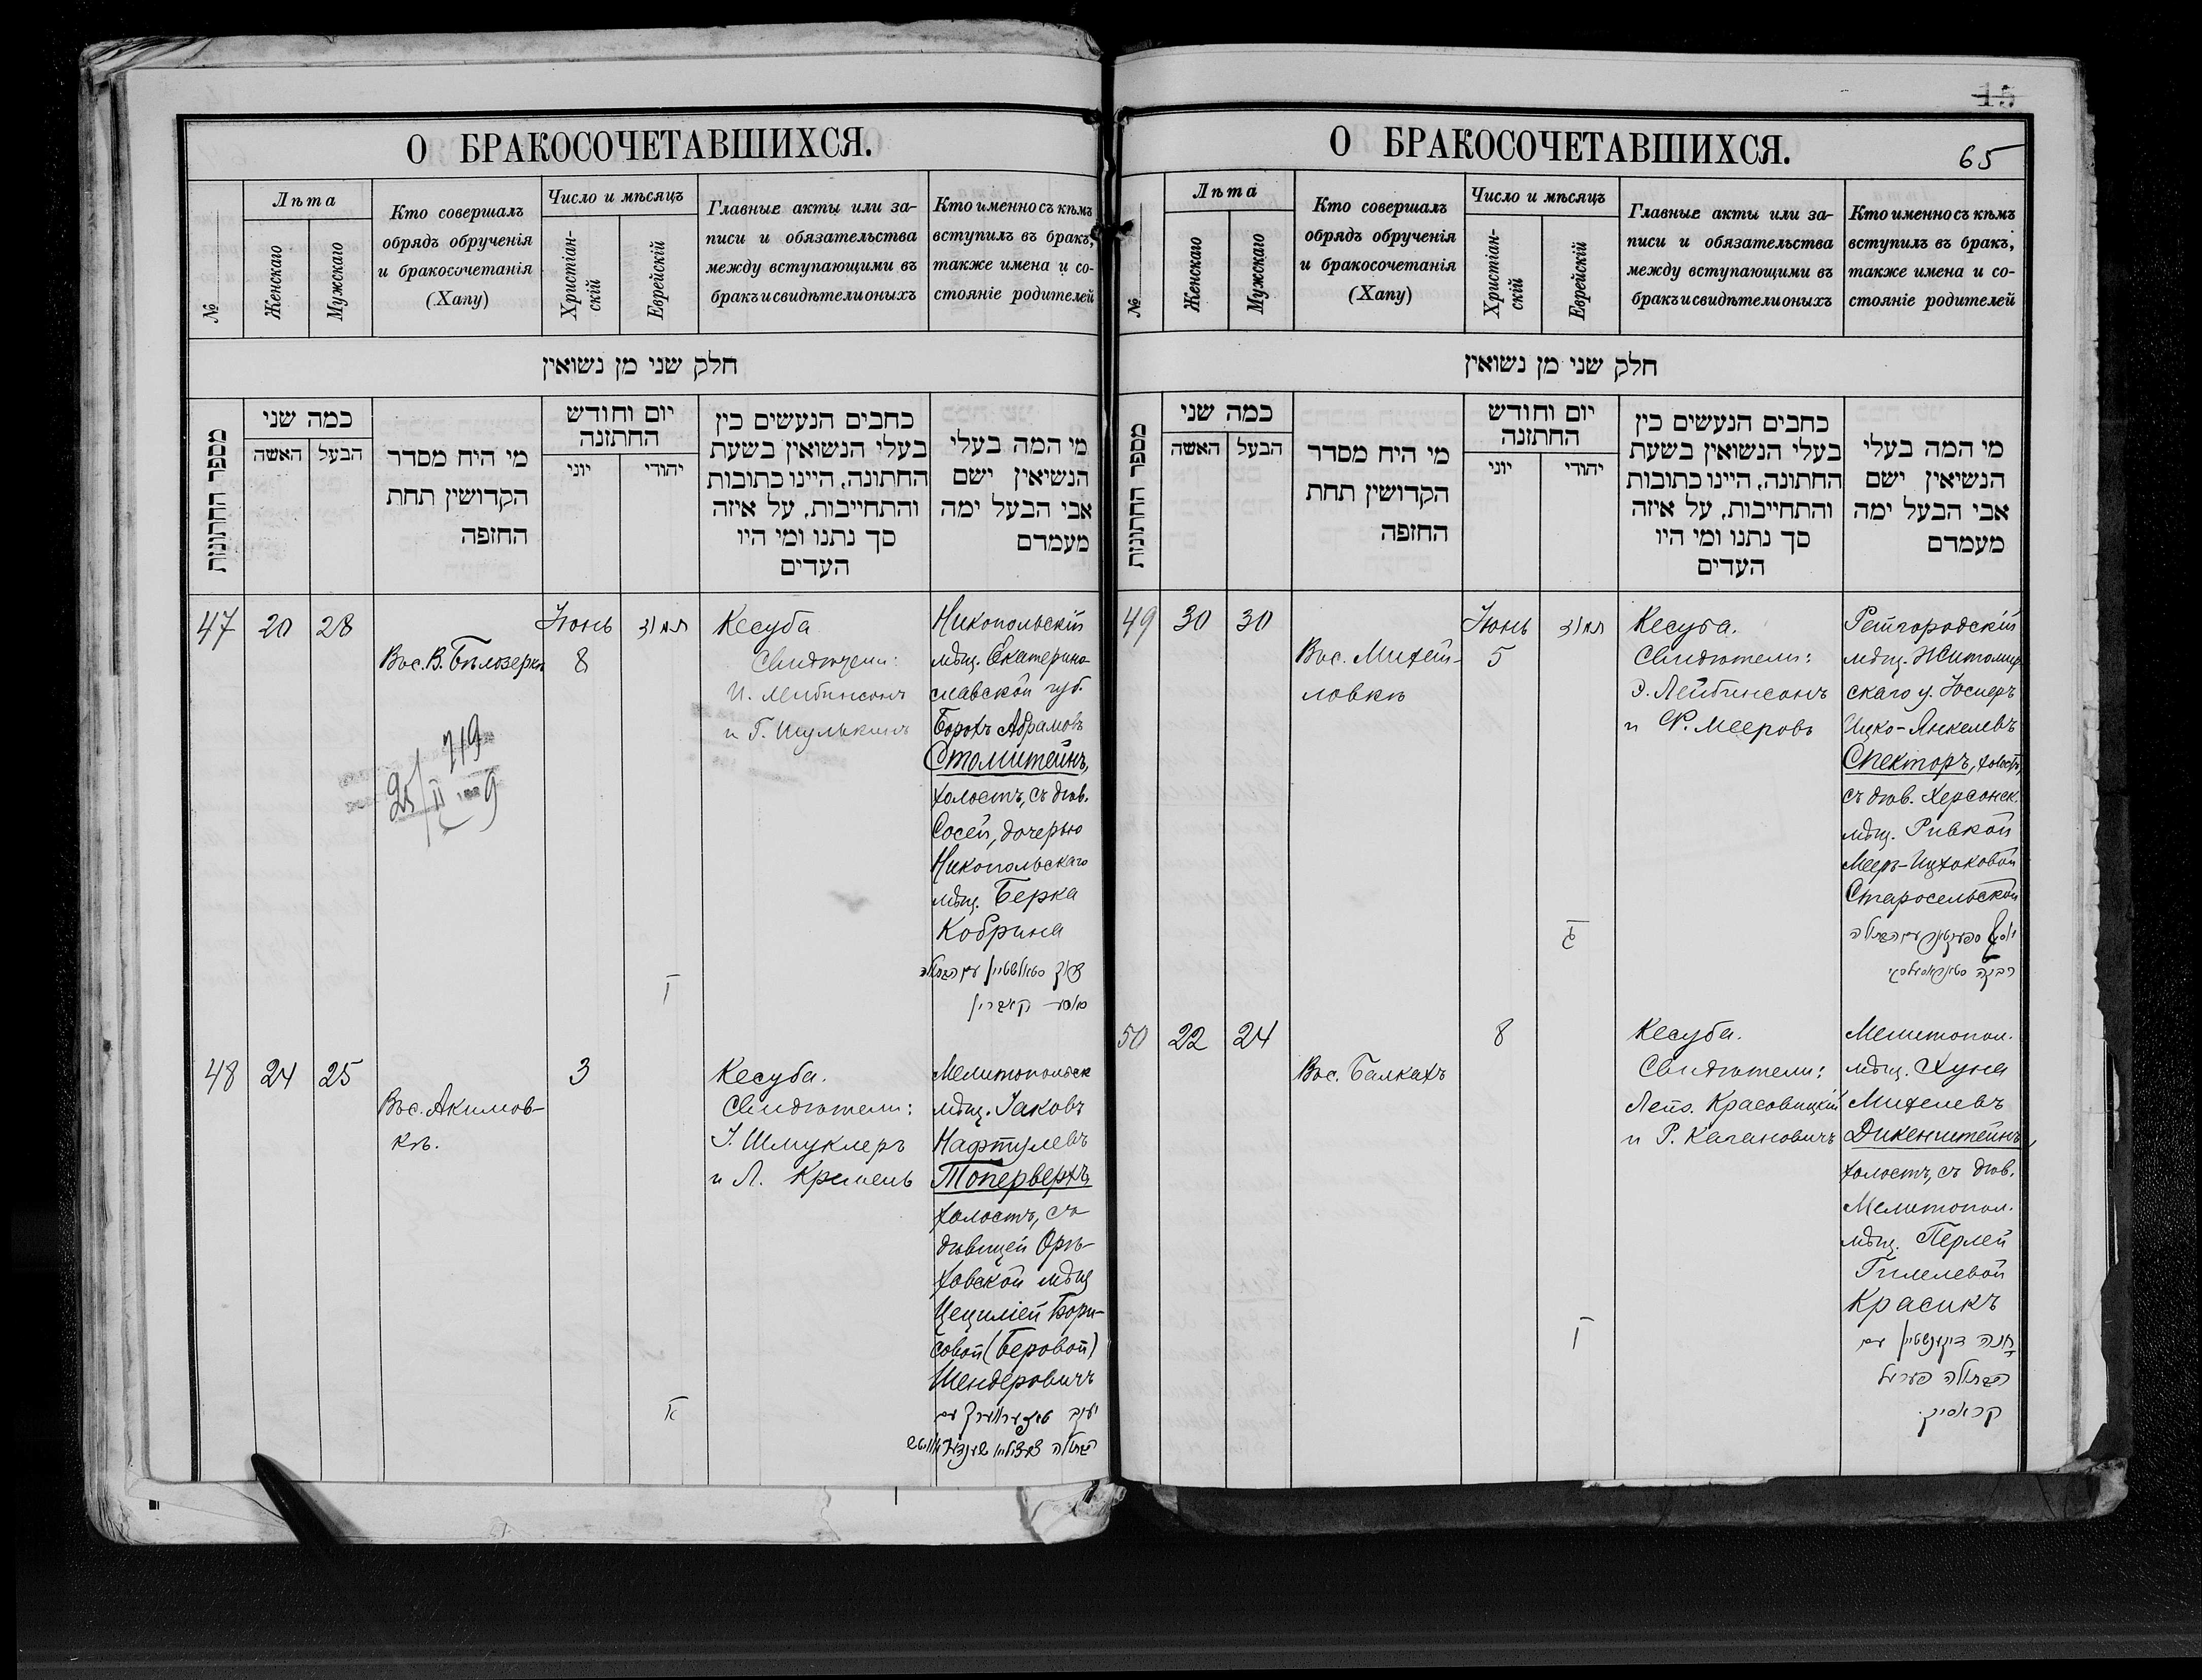 О БРАКОСОЧЕТАВШИХСЯ.
№
Лѣта
Женскаго
Мужскаго
Кто совершалъ
обрядъ обрученія
и бракосочетанія
(Хапу)
Число и мѣсяцъ
Христіан-
скій
Еврейскій
Главные акты или за-
писи и обязательства
между вступающими въ
бракъ и свидѣтели оныхъ
Кто именно съ кѣмъ
вступилъ въ бракъ,
также имена и со-
стояніе родителей
חלק שני מן נשואין
מספר החתונות
כמה שני
האשה
הבעל
מי היח מסדר
הקדושין תחת
החזפה
יום וחודש
החתזנה
יוני
יהודי
כחבים הנעשים כין
בעלי הנשואין בשעת
החתונה, היינו כתובות
והתחייבות, על איזה
סך נתנו ומי היו
העדים
מי המה בעלי
הנשיאין ישם
אבי הבעל ימה
מעמדם
47
20
28
Вос. В. Бѣлозерка
Іюнь
8
תמוז
Кесуба
Свидѣтели:
И. Лейбинсонъ
и Г. Шулькинъ
Никопольскій
мѣщ. Екатерино-
славской губ.
Борохъ Абрамовъ
Столштейнъ,
холостъ, съ дѣв.
Сосей, дочерью
Никопольскаго
мѣщ. Берка
Кобрина
719
25/II 9
48
24
25
Вос. Акимов-
кѣ.
3
Кесуба.
Свидѣтели:
І. Шмуклеръ
и Л. Кремень
Мелитопольск
мѣщ. Іаковъ
Нафтулевъ
Топервертъ
холостъ, съ
дѣвицей Орѣ-
ховской мѣщ
Цециліей Бори-
совой (Беровой)
Шендеровичъ
15
О БРАКОСОЧЕТАВШИХСЯ.
65
№
Лѣта
Женскаго
Мужскаго
Кто совершалъ
обрядъ обрученія
и бракосочетанія
(Хапу)
Число и мѣсяцъ
Христіан-
скій
Еврейскій
Главные акты или за-
писи и обязательства
между вступающими въ
бракъ и свидѣтели оныхъ
Кто именно съ кѣмъ
вступилъ въ бракъ,
также имена и со-
стояніе родителей
חלק שני מן נשואין
מספר החתונות
כמה שני
האשה
הבעל
מי היח מסדר
הקדושין תחת
החזפה
יום וחודש
החתזנה
יוני
יהודי
כחבים הנעשים כין
בעלי הנשואין בשעת
החתונה, היינו כתובות
והתחייבות, על איזה
סך נתנו ומי היו
העדים
מי המה בעלי
הנשיאין ישם
אבי הבעל ימה
מעמדם
49
30
30
Вос. Михей-
ловкѣ
Іюнь
5
תמוז
Кесуба.
Свидѣтели:
Э. Лейбинсонъ
и Ф. Мееровъ
мѣщ. Житомир-
скаго у.
Ицко-Янкелевъ
Спекторъ, холостъ,
съ дѣв. Херсонск.
мѣщ. Ривкой
Меер-Ицхоковой
Старосельской
50
22
24
Вос. Балкахъ
8
Кесуба.
Свидѣтели:
Лейз. Красовицкій
и Р. Кагановичъ
Мелитопол.
мѣщ. Хуна
Михелевъ
Дикенштейнъ,
холостъ, съ дѣв.
Мелитопол.
мѣщ. Перлей
Гилелевой
Красикъ
חנה דיקענשטיין עם
הבתולה פערל
קראסיק.